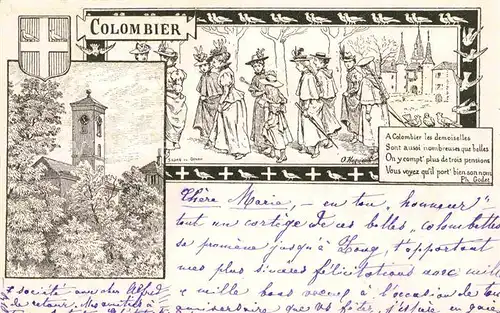 COLOMBIER
A Colombier les demoiselles
Sont aussi nombreuses que belles
On y compt' plus de trois pensions
Vous voyez qu'il port' bien son nom
Ph. Godet
Chère Maria, – en ton "honneur"
tout un cortège de ces belles "colombelles"
se promène jusqu'à Zoug, t'apportant
mes plus sincères félicitations avec mille
e mille bons voeux à l'occasion de ton
anniversaire que
société
cher Alfred
de retour. Mes amitiés à